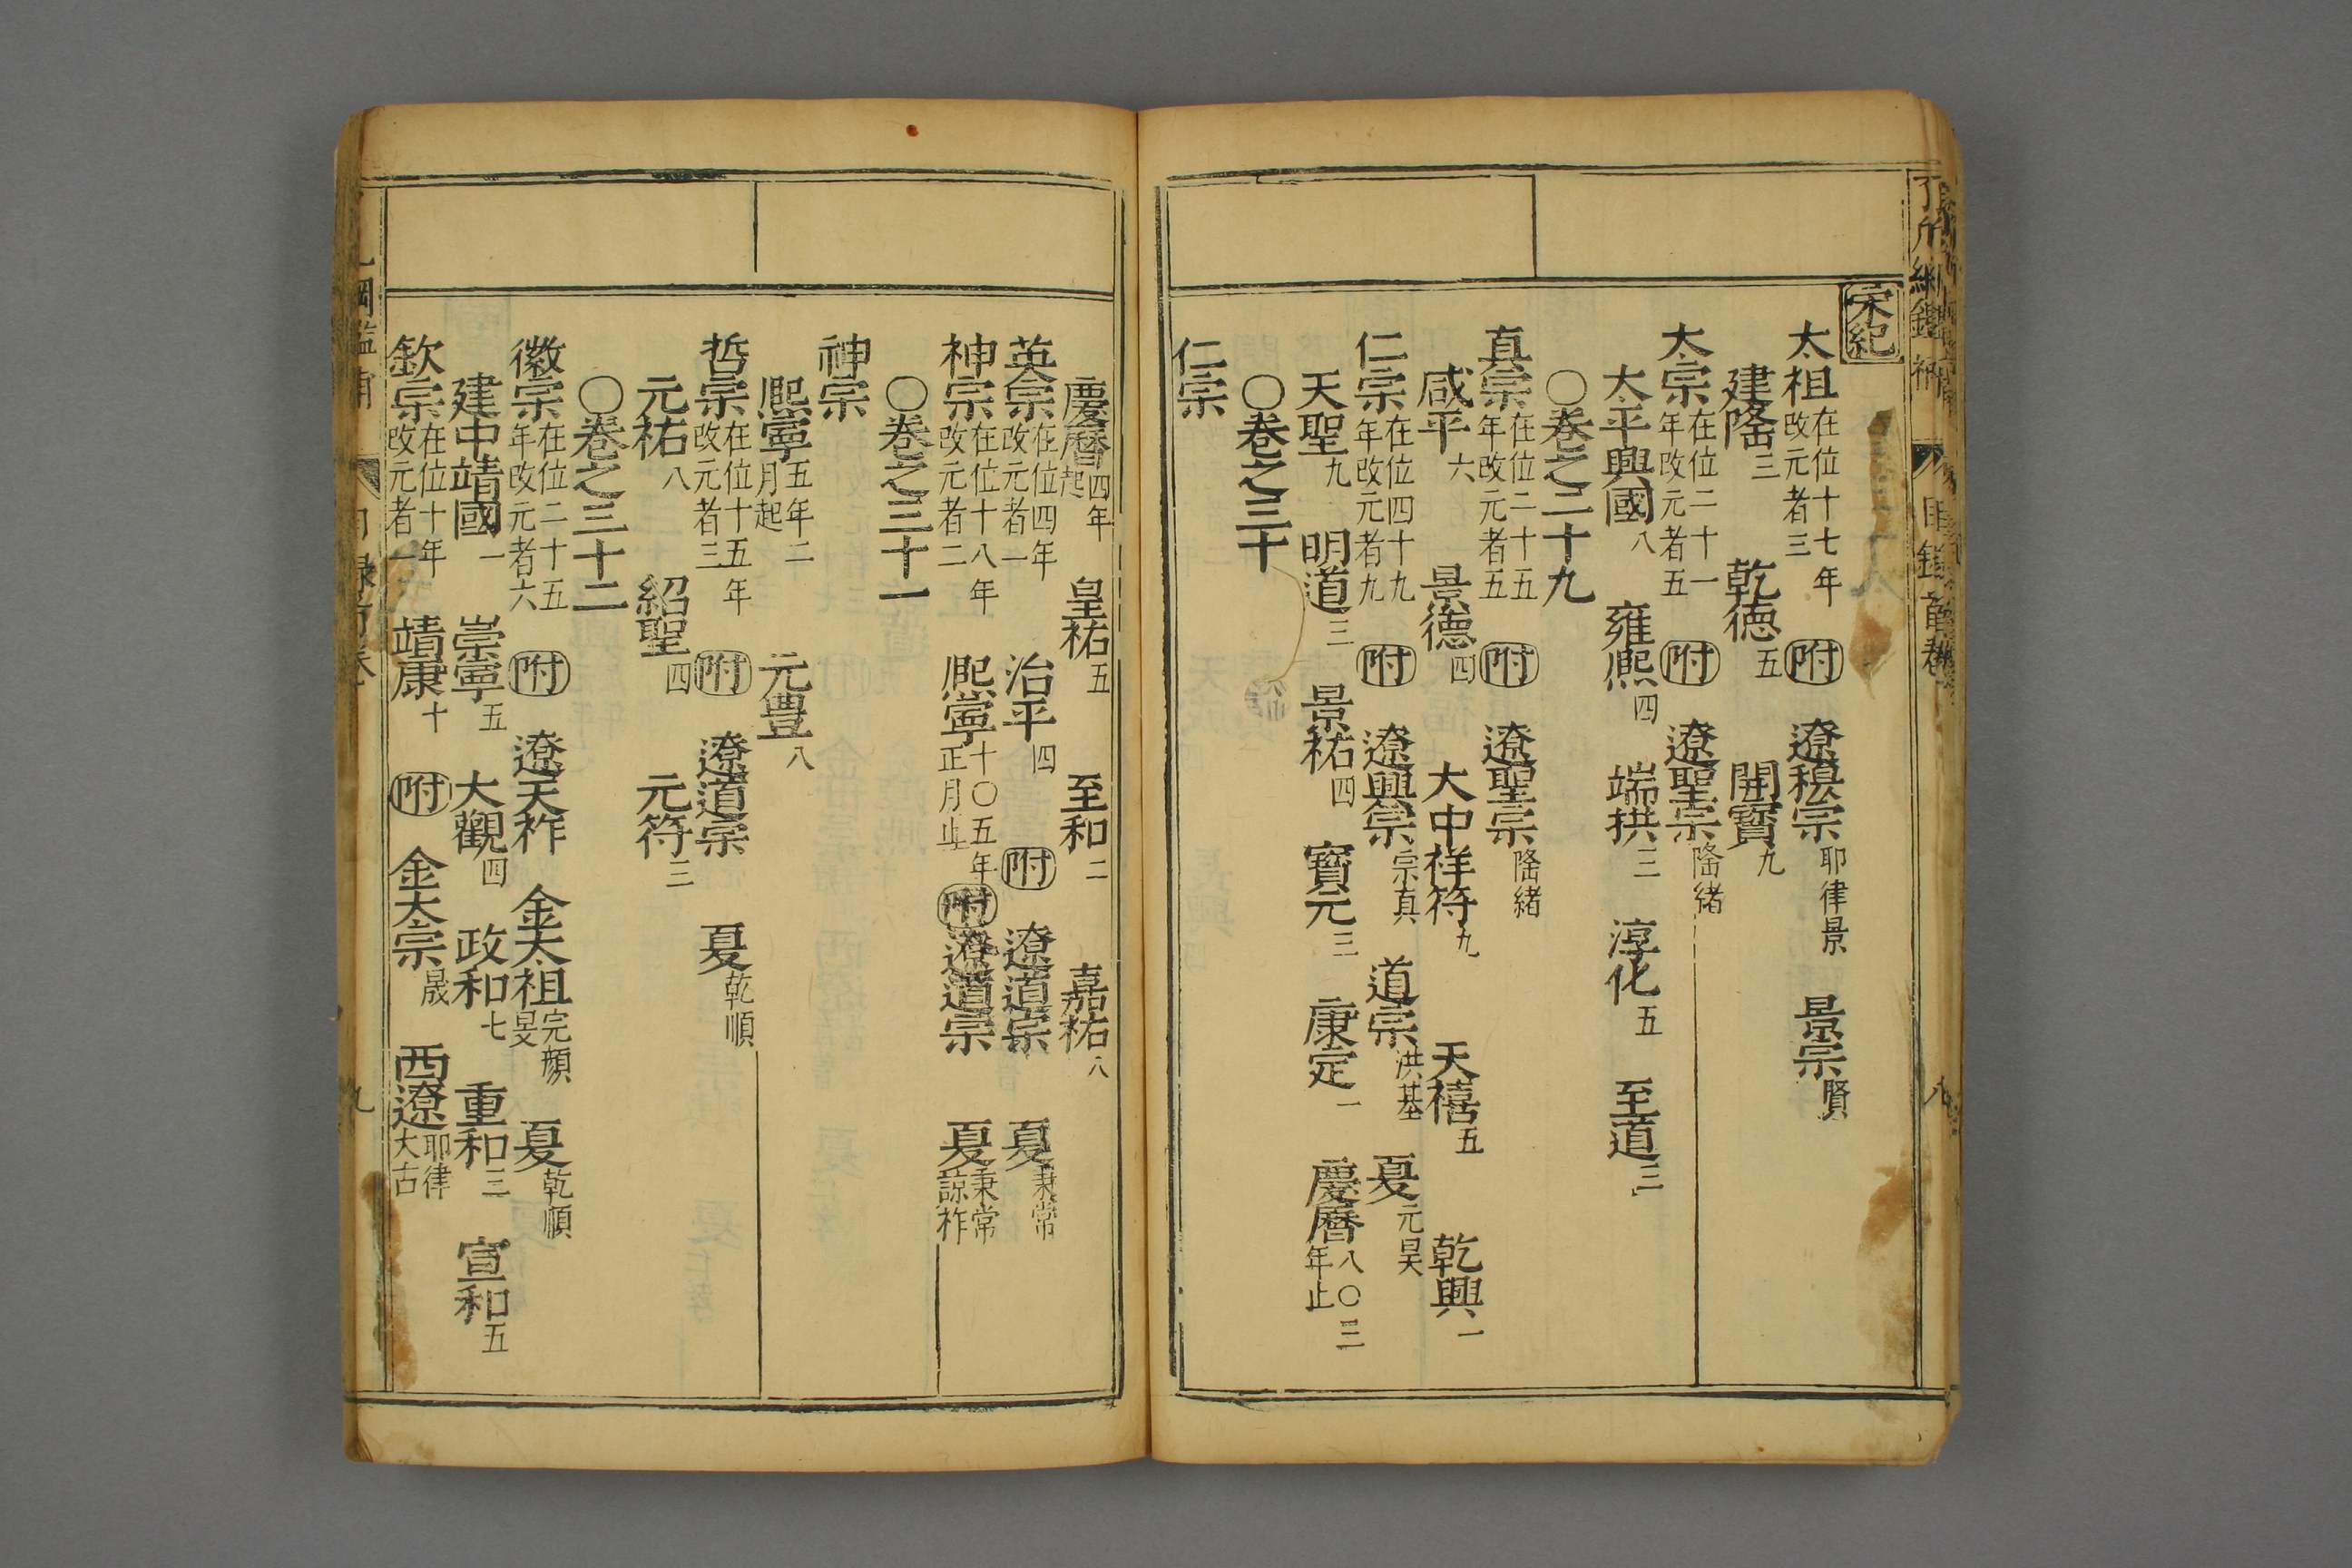 宋紀
太祖在位十七年改元者三 附 遼穆宗耶律景 景宗賢
建隆三 乾德五 開寶九
太宗在位二十一年改元者五 附 遼聖宗隆緒
太平興國八 雍熙四 端拱二 淳化五 至道三
○卷之二十九
真宗在位二十五年改元者五 附 遼聖宗隆緒
咸平六 景德四 大中祥符九 天禧五 乾興一
仁宗在位四十九年改元者九 附 遼興宗宗真 道宗洪基 夏元昊
天聖九 明道三 景祐四 寶元三 康定一 慶曆八○三年止
○卷之三十
仁宗
慶曆四年起 皇祐五 至和二 嘉祐八
英宗在位四年改元者一 治平四 附 遼道宗 夏秉常
神宗在位十八年改元者二 熙寧十○五年正月止 附 遼道宗 夏秉常諒祚
○卷之三十一
神宗
熙寧五年二月起 元豊八
哲宗在位十五年改元者三 附 遼道宗 夏乾順
元祐八 紹聖四 元符三
○卷之三十二
徽宗在位二十五年改元者六 附 遼天祚 金太祖完顏旻 夏乾順
建中靖國一 崇寧五 大觀四 政和七 重和三 宣和五
欽宗在位十年改元者一 靖康十 附 金太宗晟 西遼耶律大古